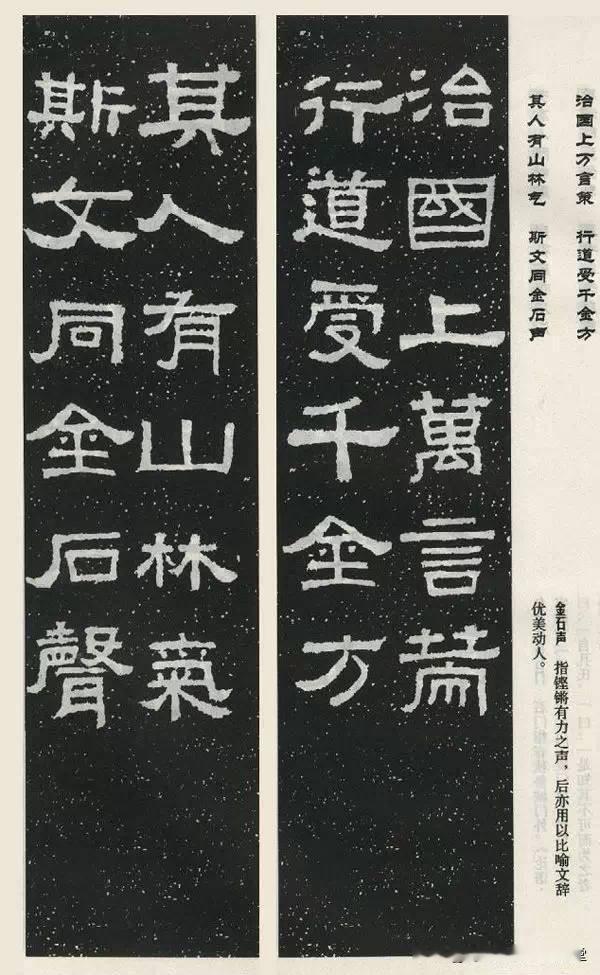 治国上万言策 行道受千金方
其人有山林气 斯文同金石声
金石声 指铿锵有力之声，后亦用以比喻文辞
优美动人。
治國上萬言策
行道受千金方
其人有山林氣
斯文同金石聲